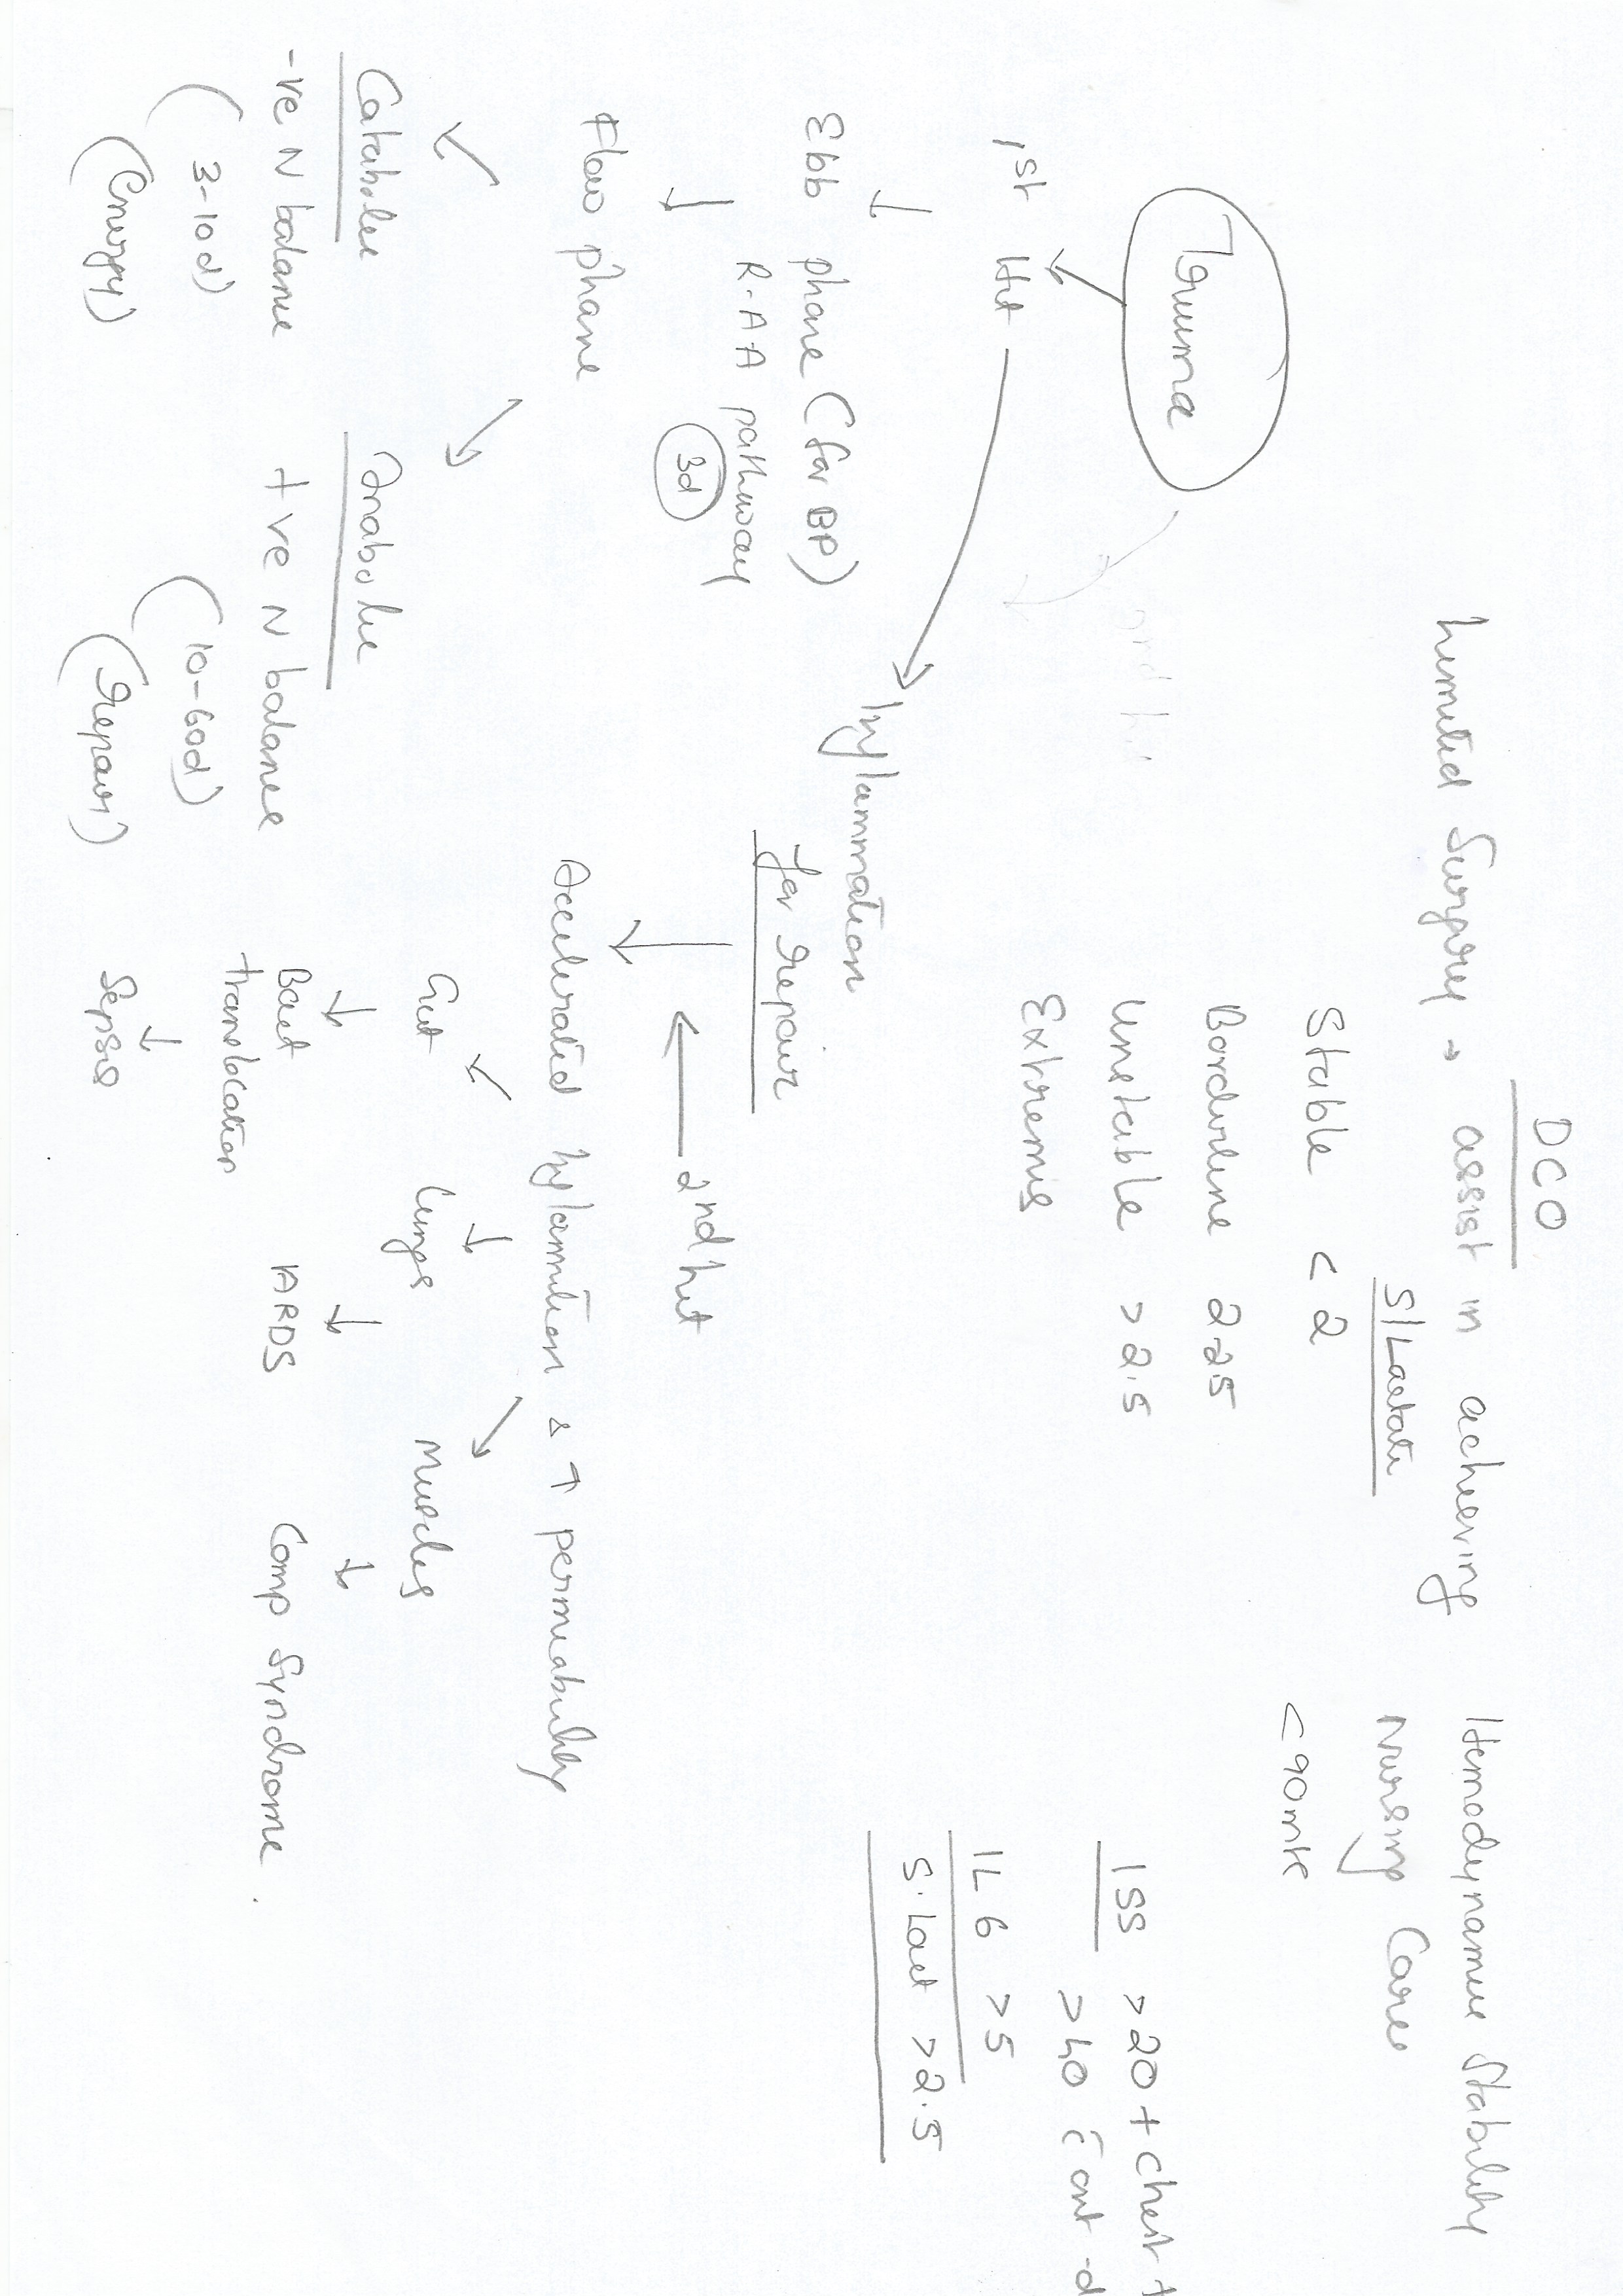 DCO
Limited Surgery → assist in achieving Hemodynamic Stability
Nursing Care
S/Lactate
< 90mts
Stable < 2
Borderline 2-2.5
Unstable > 2.5
Extremis
Trauma
1st Hit
ISS > 20 + Chest t
> 40 c̄ out
IL 6 > 5
S. Lact > 2.5
Inflammation
for repair
Ebb phase (for BP)
R-A A pathway
3d
2nd hit
Flow phase
Accelerated Inflammation & ↑ permeability
Catabolic
Anabolic
Gut
Lungs
Muscles
-ve N balance
+ve N balance
Bact
translocation
ARDS
Comp Syndrome.
(3-10d)
(10-60d)
(Energy)
(repair)
Sepsis